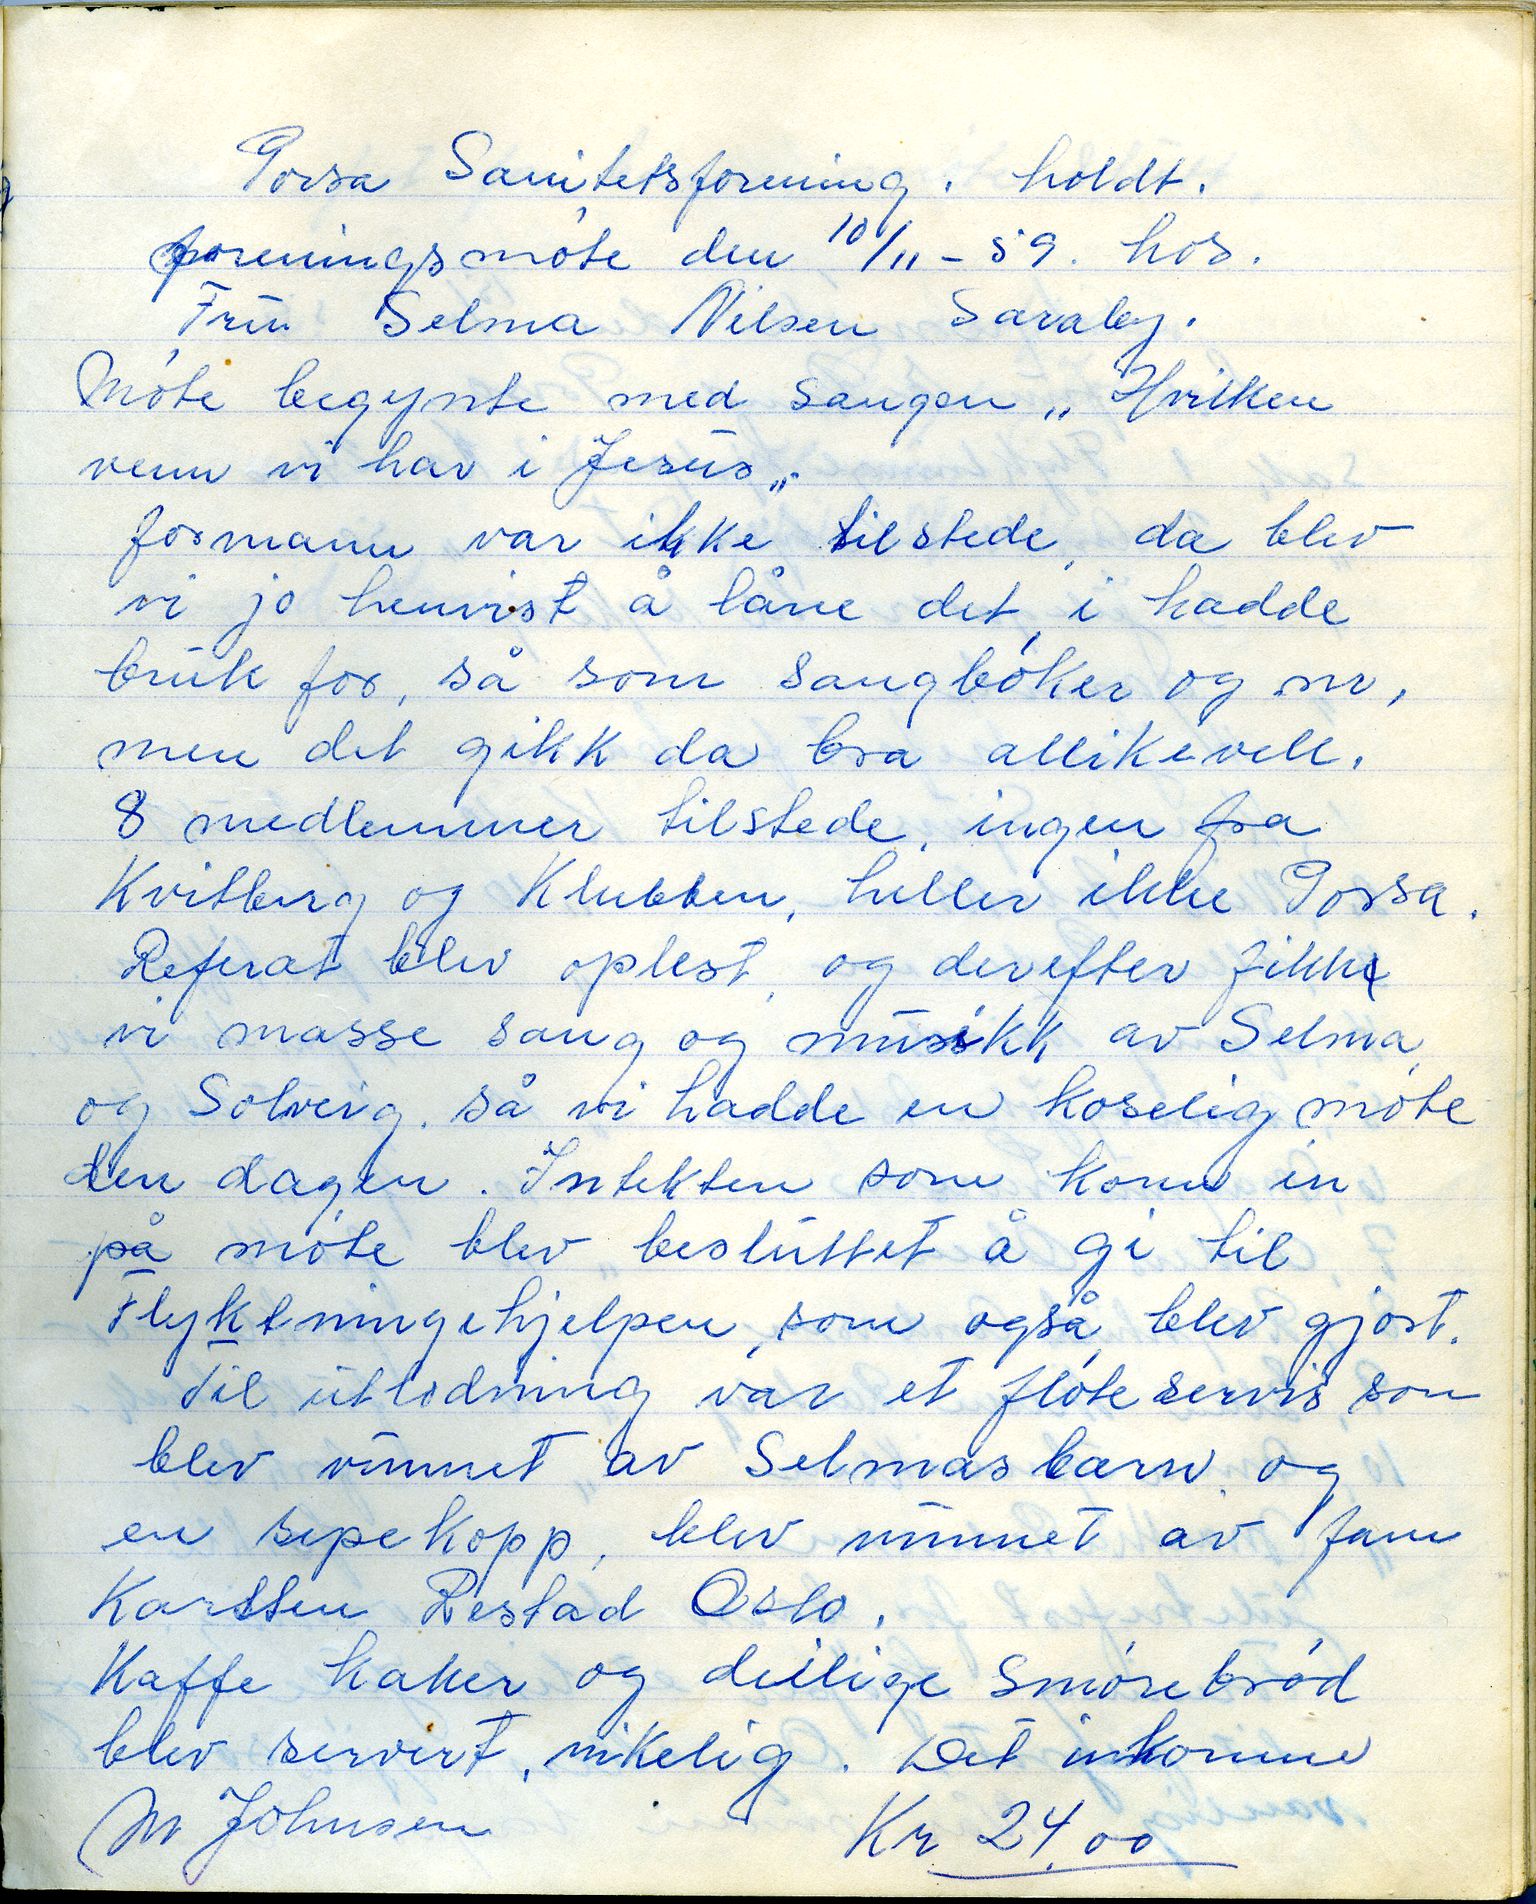 Porsa Sanitetsforening. holdt.
foreningsmøte den 10/11 - 59. hos.
Fru Selma Nilsen Saraby.
Møte begynte med sangen „Hvilken
venn vi har i Jesus„.
formann var ikke tilstede, da blev
vi jo henvist å låne det, i hadde
bruk for, så som sangbøker og nr,
men det gikk da bra allikevell.
8 medlemmer tilstede, ingen fra
Kvitberg og Klubben, heller ikke Porsa.
Referat blev oplest, og derefter fikk
vi masse sang og musikk av Selma,
og Solveig. så vi hadde en koselig møte
den dagen. Intekten som kom in
på møte blev besluttet å gi til
Flyktningehjelpen, som også blev gjort.
Til utlodning var et fløteservis som
blev vunnet av Selmas barn, og
en sepekopp, blev vunnet av fam
Karsten Restad Oslo.
Kaffe kaker og deilige smørebrød
blev servert, rikelig. Det inkomne
M Johnsen Kr 24,00